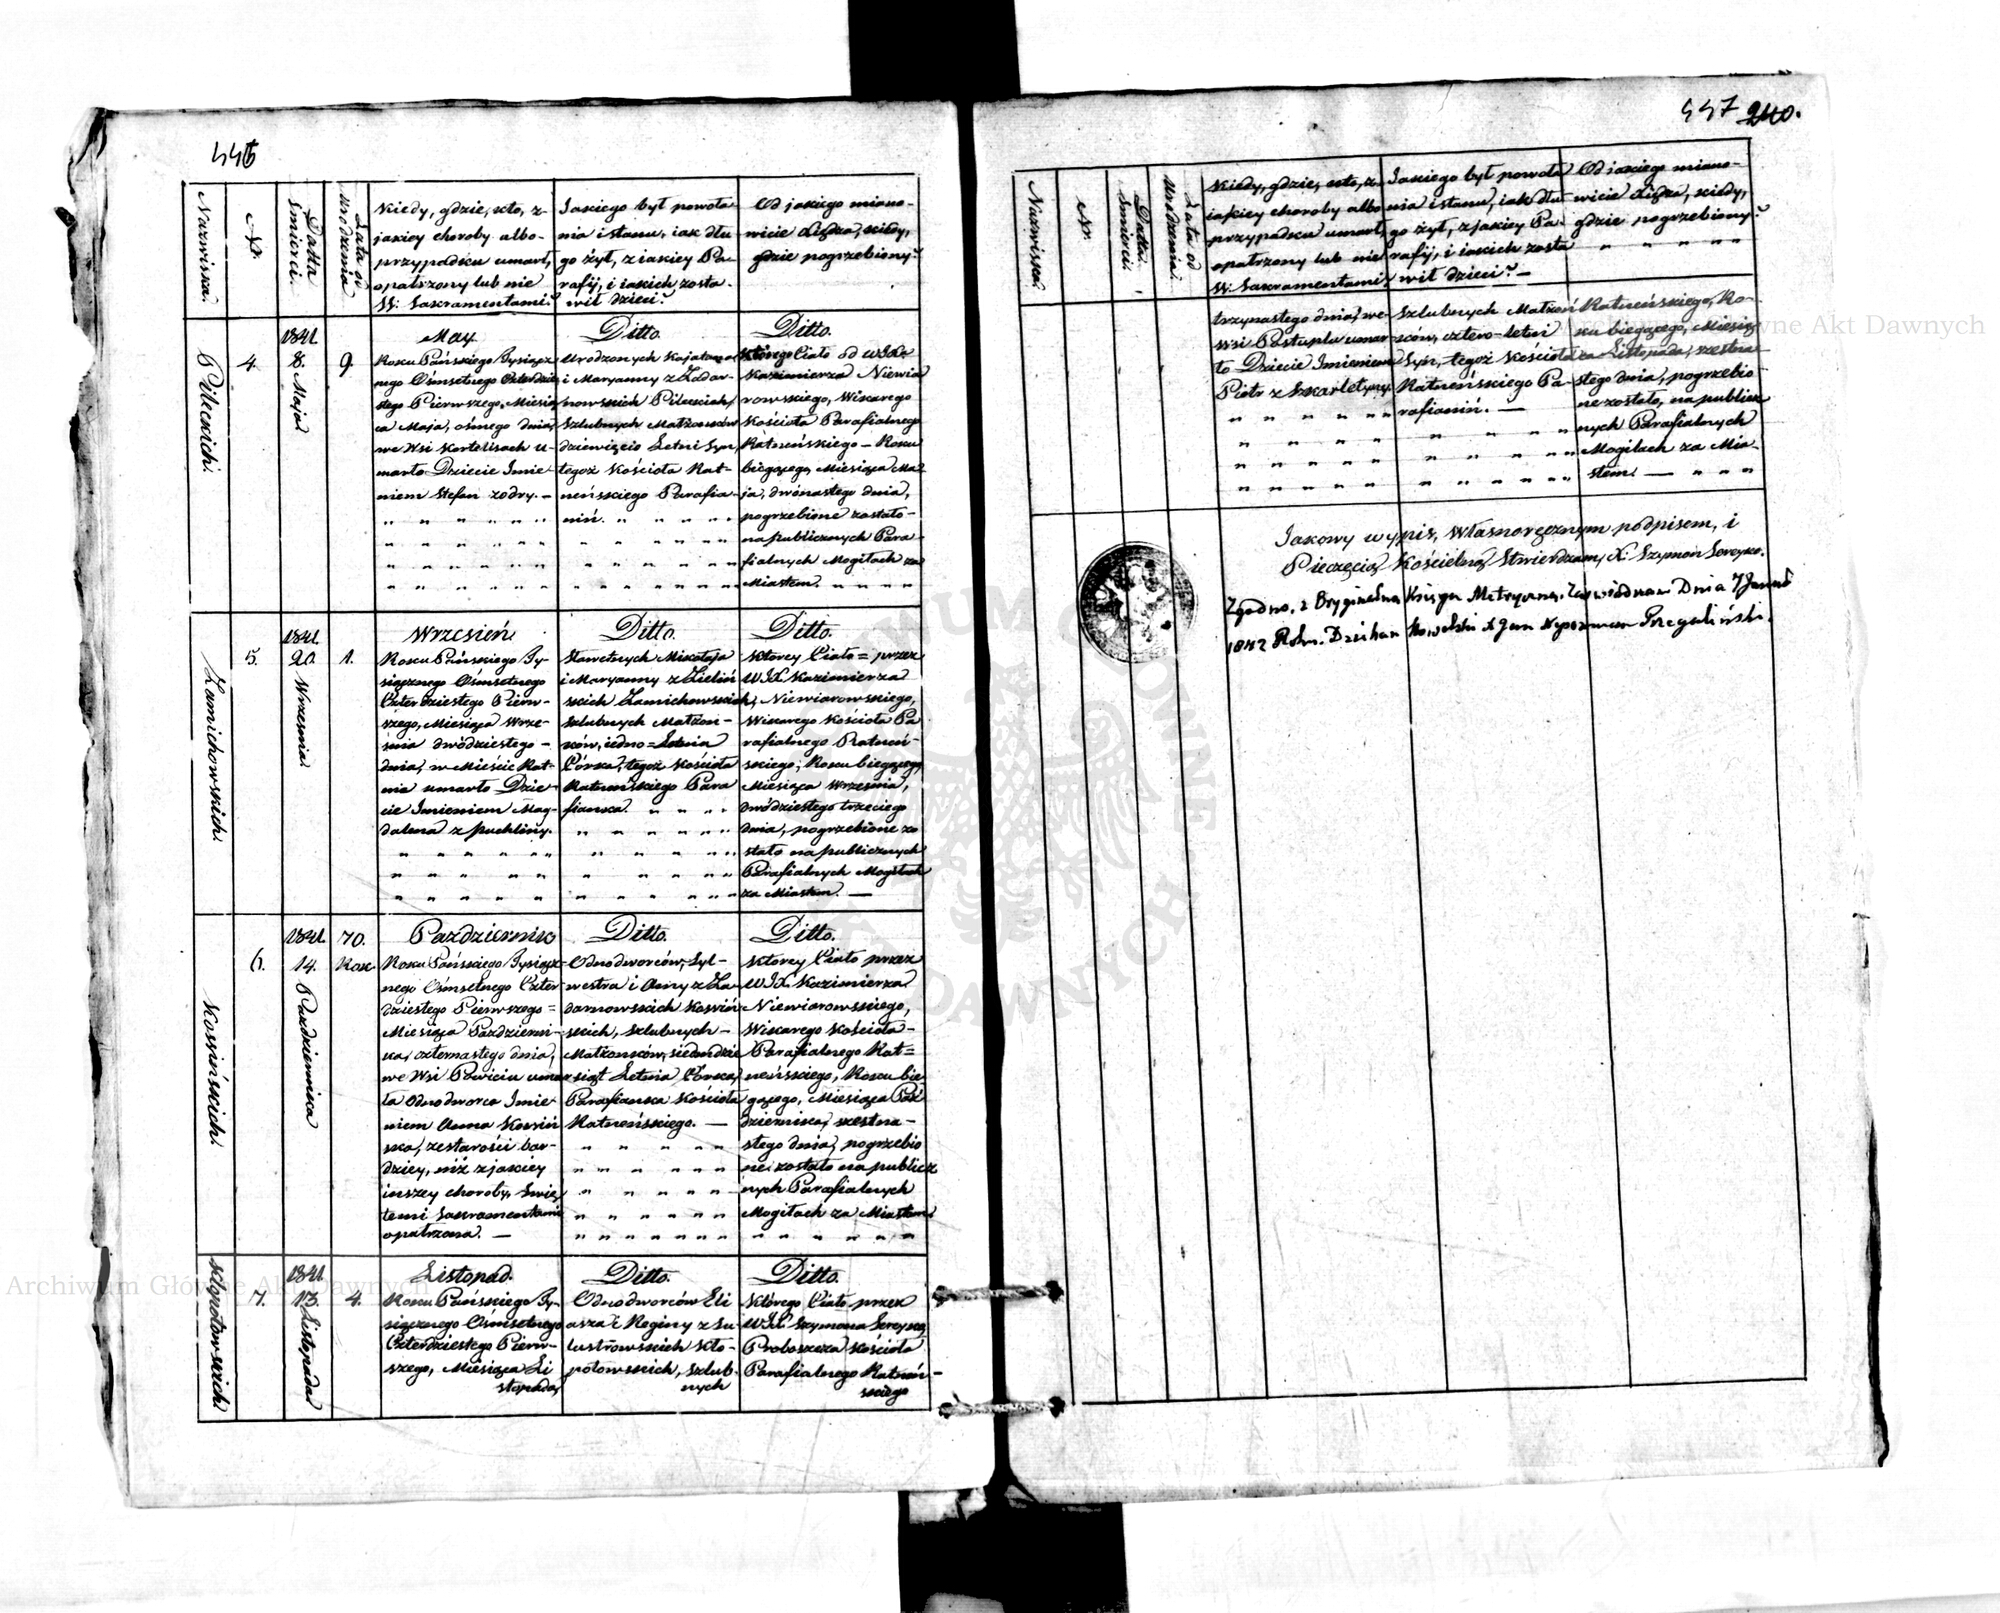 446
Nazwiska.
N.
Datta Smierci.
Lata od Urodzenia
Kiedy, gdzie, kto, z
jakiey choroby albo
przypadku umarł,
opatrzony lub nie
SS: Sakramentami?
Jakiego był powoła
nia i stanu, iak dłu
go żył, z iakiey Pa
rafij, i iakich zosta
wił dzieci?
Od jakiego miano-
wicie Xiędza, kiedy,
gdzie pogrzebiony?
Pileckich.
4.
1841.
8. Maja
9.
May.
Roku Pańskiego Tysiącz
nego Ośmsetnego Czterdzie
stego Pierwszego, Miesią
ca Maja, ósmego dnia,
we Wsi Kortelisach u-
marło Dziecie Imie
niem Stefan z odry. —
Ditto.
Urodzonych Kajetana
i Maryanny z Zadar
nowskich Pileckich,
Szlubnych Małżonków
dziewięcio Letni Syn,
tegoż Kościoła Rat-
neńskiego Parafia-
nin.
Ditto.
Którego Ciało od WJX
Kazimierza Niewia
rowskiego, Wikarego
Kościoła Parafialnego
Ratneńskiego — Roku
bieżącego, Miesiąca Ma
ja, dwónastego dnia,
pogrzebione zostało-
na publicznych Para
fialnych Mogiłach za
Miastem.
Zamichowskich.
5.
1841.
20. Wrzesnia.
1.
Wrzesień.
Roku Pańskiego Ty-
siącznego Ośmsetnego
Czterdziestego Pierw-
szego, Miesiąca Wrze-
śnia dwódziestego -
dnia, w Mieście Rat-
nia umarło Dzie-
cie Imieniem Mag-
dalena z puchliny.
Ditto.
Sławetnych Mikołaja
i Maryanny z Zieliń
skich Zamichowskich,
Szlubnych Małżon-
ków, iedno=Letnia
Córka, tegoż Kościoła
Ratneńskiego Para
fianka.
Ditto.
Którey Ciało = przez
WJX Kazimierza
Niewiarowskiego,
Wikarego Kościoła Pa
rafialnego Ratneń-
skiego, Roku bieżącego,
Miesiąca Wrzesnia,
dwódziestego trzeciego
dnia, pogrzebione zo
stało na publicznych
Parafialnych Mogiłach
za Miastem. —
Kosińskich.
6.
1841.
14. Pazdziernika
70. Rok.
Pazdziernik
Roku Pańskiego Tysiącz
nego Ośmsetnego Czter
dziestego Pierwszego =
Miesiąca Pazdzierni-
ka, czternastego dnia,
we Wsi Powiciu umar
ła Odnodworca Imie
niem Anna Kosiń
ska, ze starości bar-
dziey, niż z jakiey
inszey choroby, Swię
temi Sakramentami
opatrzona. —
Ditto.
Odnodworców, Syl-
westra i Anny z Za
darnowskich Kosiń
skich, Szlubnych -
Małżonków, siedmdzie
siąt Letnia Córka,
Parafianka Kościoła
Ratneńskiego. —
Ditto.
Którey Ciało przez
WJX Kazimierza
Niewiarowskiego,
Wikarego Kościoła -
Parafialnego Rat=
neńskiego, Roku bie
żącego, Miesiąca Paź
dziernika, szesna-
stego dnia, pogrzebio
ne zostało na publicz
nych Parafialnych
Mogiłach za Miastem.
Kłopotowskich.
7.
1841.
13. Listopada.
4.
Listopad.
Roku Pańskiego Ty-
siącznego Ośmsetnego
Czterdziestego Pierw-
szego, Miesiąca Li
stopada,
Ditto.
Odnodworców Eli
asza i Reginy z Su
lustrowskich Kło-
potowskich, Szlub-
nych
Ditto.
Którego Ciało przez
WJX Szymona
Proboszcza Kościoła
Parafialnego Ratneń-
skiego
447 240.
Nazwiska.
Nr.
Datta Smierci.
Lata od Urodzenia
Kiedy, gdzie, kto, z
iakiey choroby albo
przypadku umarł,
opatrzony lub nie
SS: Sakramentami,
Jakiego był powoła
nia i stanu, iak dłu
go żył, z jakiey Pa-
rafij, i iakich zosta
wił dzieci? —
Od iakiego miano-
wicie Xiędza, kiedy,
gdzie pogrzebiony?
trzynastego dnia, we-
Wsi Postuplu umar
ło Dziecie Imieniem
Piotr z Szkarlatyny.
Szlubnych Małżon
ków, cztero-letni
Syn, tegoż Kościoła
Ratneńskiego Pa-
rafianin. —
Ratneńskiego, Ro-
ku bieżącego, Miesią
ca Listopada, szesna
stego dnia, pogrzebio
ne zostało, na publicz
nych Parafialnych
Mogiłach za Mia-
stem. —
Jakowy wypis, Własnoręcznym podpisem, i
Pieczęcią Kościelną Stwierdzam, X. Szymon
Zgodno z Oryginalną Księgą Metryczną. Zaswiadczam Dnia 7
1842 Roku. Dziekan Kowelski X Jan Nepomucen
Archiwum Główne Akt Dawnych